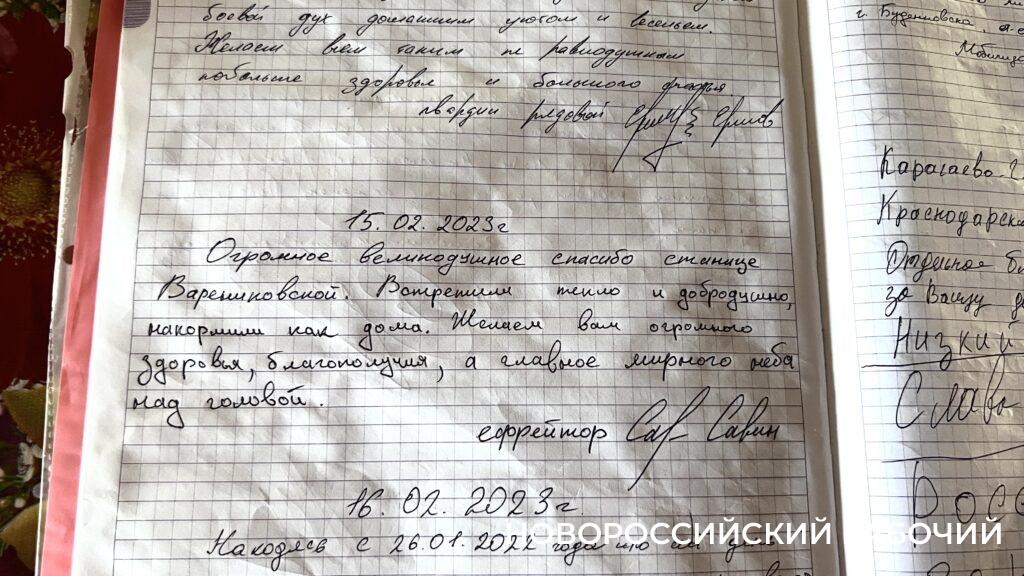 боевой дух домашним уютом и весельем.
Желаем всем таким не равнодушным
побольше здоровья и большого счастья
гвардии рядовой Ермов
15.02.2023г
Огромное великодушное спасибо станице
Варениковской. Встретили тепло и добродушно,
накормили как дома. Желаем вам огромного
здоровья, благополучия, а главное мирного неба
над головой.
ефрейтор Сав Савин
16.02.2023г
Находясь с 26.01.2022 года
г. Буденновска
Карагаево
Краснодарски
Отдельное
за Вашу
Низкий
Слава
Росс
НОВОРОССИЙСКИЙ РАБОЧИЙ